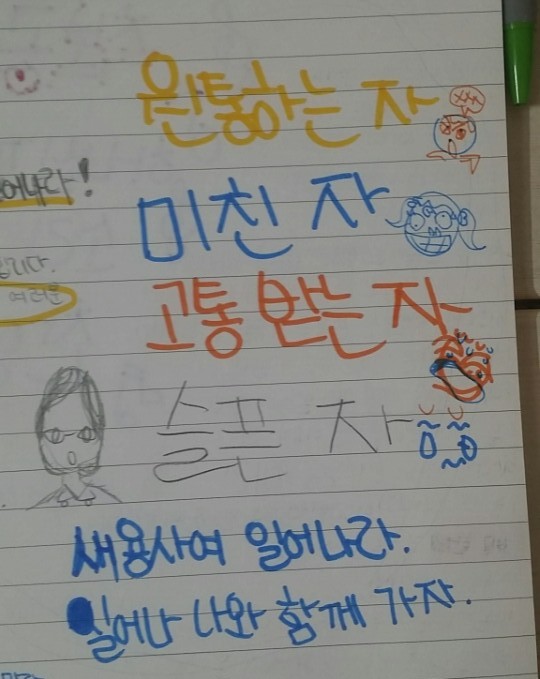 원통하는 자
어나라!
미친 자
입니다.
여러분
고통 받는 자
슬픈 자
새용사여 일어나라.
일어나 나와 함께 가자.